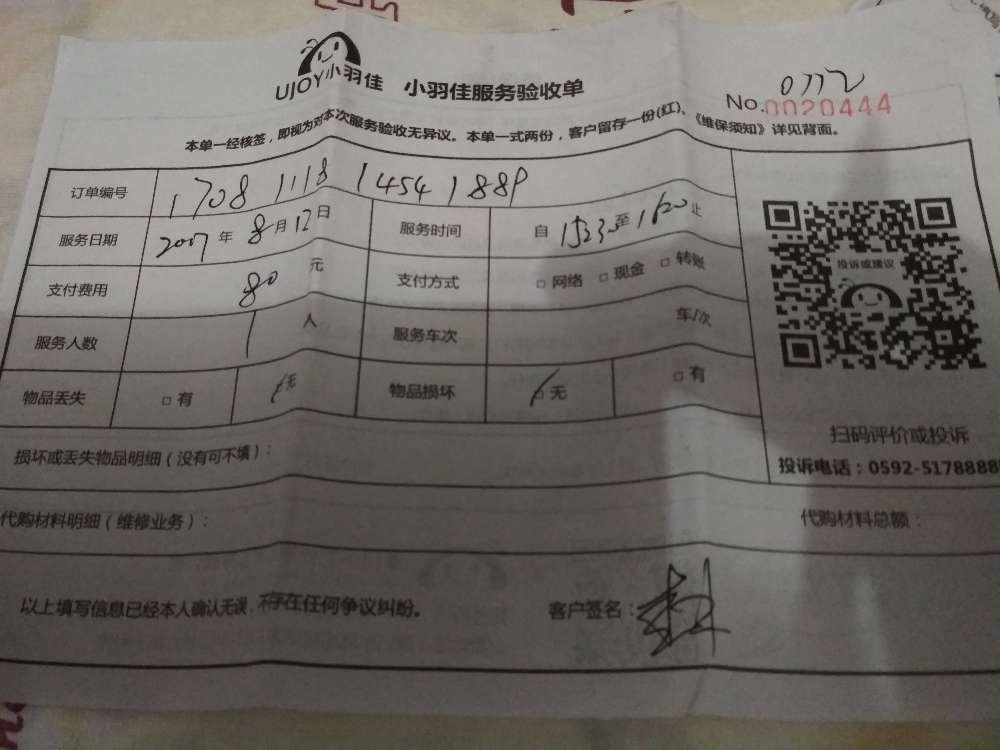 UJOY小羽佳 小羽佳服务验收单
0772
No.0020444
本单一经核签，即视为对本次服务验收无异议。本单一式两份，客户留存一份(红)、《维保须知》详见背面。
订单编号 1708 1118 1454 1889
服务日期 2007 年 8 月 12 日 服务时间 自 1523 至 1620 止
支付费用 80 元 支付方式 □ 网络 □ 现金 □ 转账
服务人数 1 人 服务车次 年/次
物品丢失 □ 有 □ 无 物品损坏 □ 无 □ 有
投诉或建议
扫码评价或投诉
投诉电话：0592-5178888
损坏或丢失物品明细（没有可不填）：
代购材料明细（维修业务）： 代购材料总额：
以上填写信息已经本人确认无误，不存在任何争议纠纷。 客户签名：